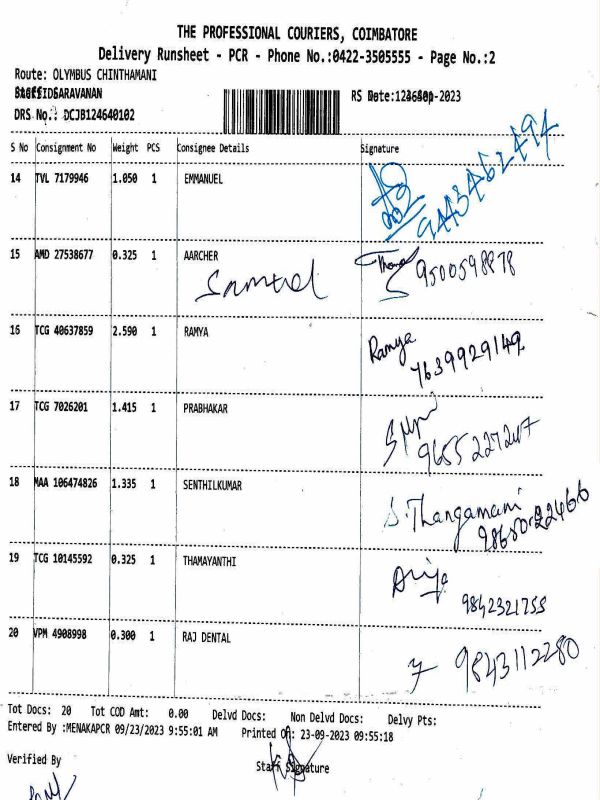 THE PROFESSIONAL COURIERS, COIMBATORE
Delivery Runsheet - PCR - Phone No.:0422-3505555 - Page No.:2
Route: OLYMBUS CHINTHAMANI
SARAVANAN RS Date: -2023
DRS No.: DCJB124640102
S No Consignment No Weight PCS Consignee Details Signature
14 TVL 7179946 1.050 1 EMMANUEL
9443462494
15 AMD 27538677 0.325 1 AARCHER
Samuel 9500598878
16 TCG 40637859 2.590 1 RAMYA
Ramya
7639929149
17 TCG 7026201 1.415 1 PRABHAKAR
9655227247
18 MAA 106474826 1.335 1 SENTHILKUMAR
S.Thangamani
98650-22466
19 TCG 10145592 0.325 1 THAMAYANTHI
9842321755
20 VPM 4908998 0.300 1 RAJ DENTAL
9843112280
Tot Docs: 20 Tot COD Amt: 0.00 Delvd Docs: Non Delvd Docs: Delvy Pts:
Entered By :MENAKAPCR 09/23/2023 9:55:01 AM Printed On: 23-09-2023 09:55:18
Verified By
Staff Signature